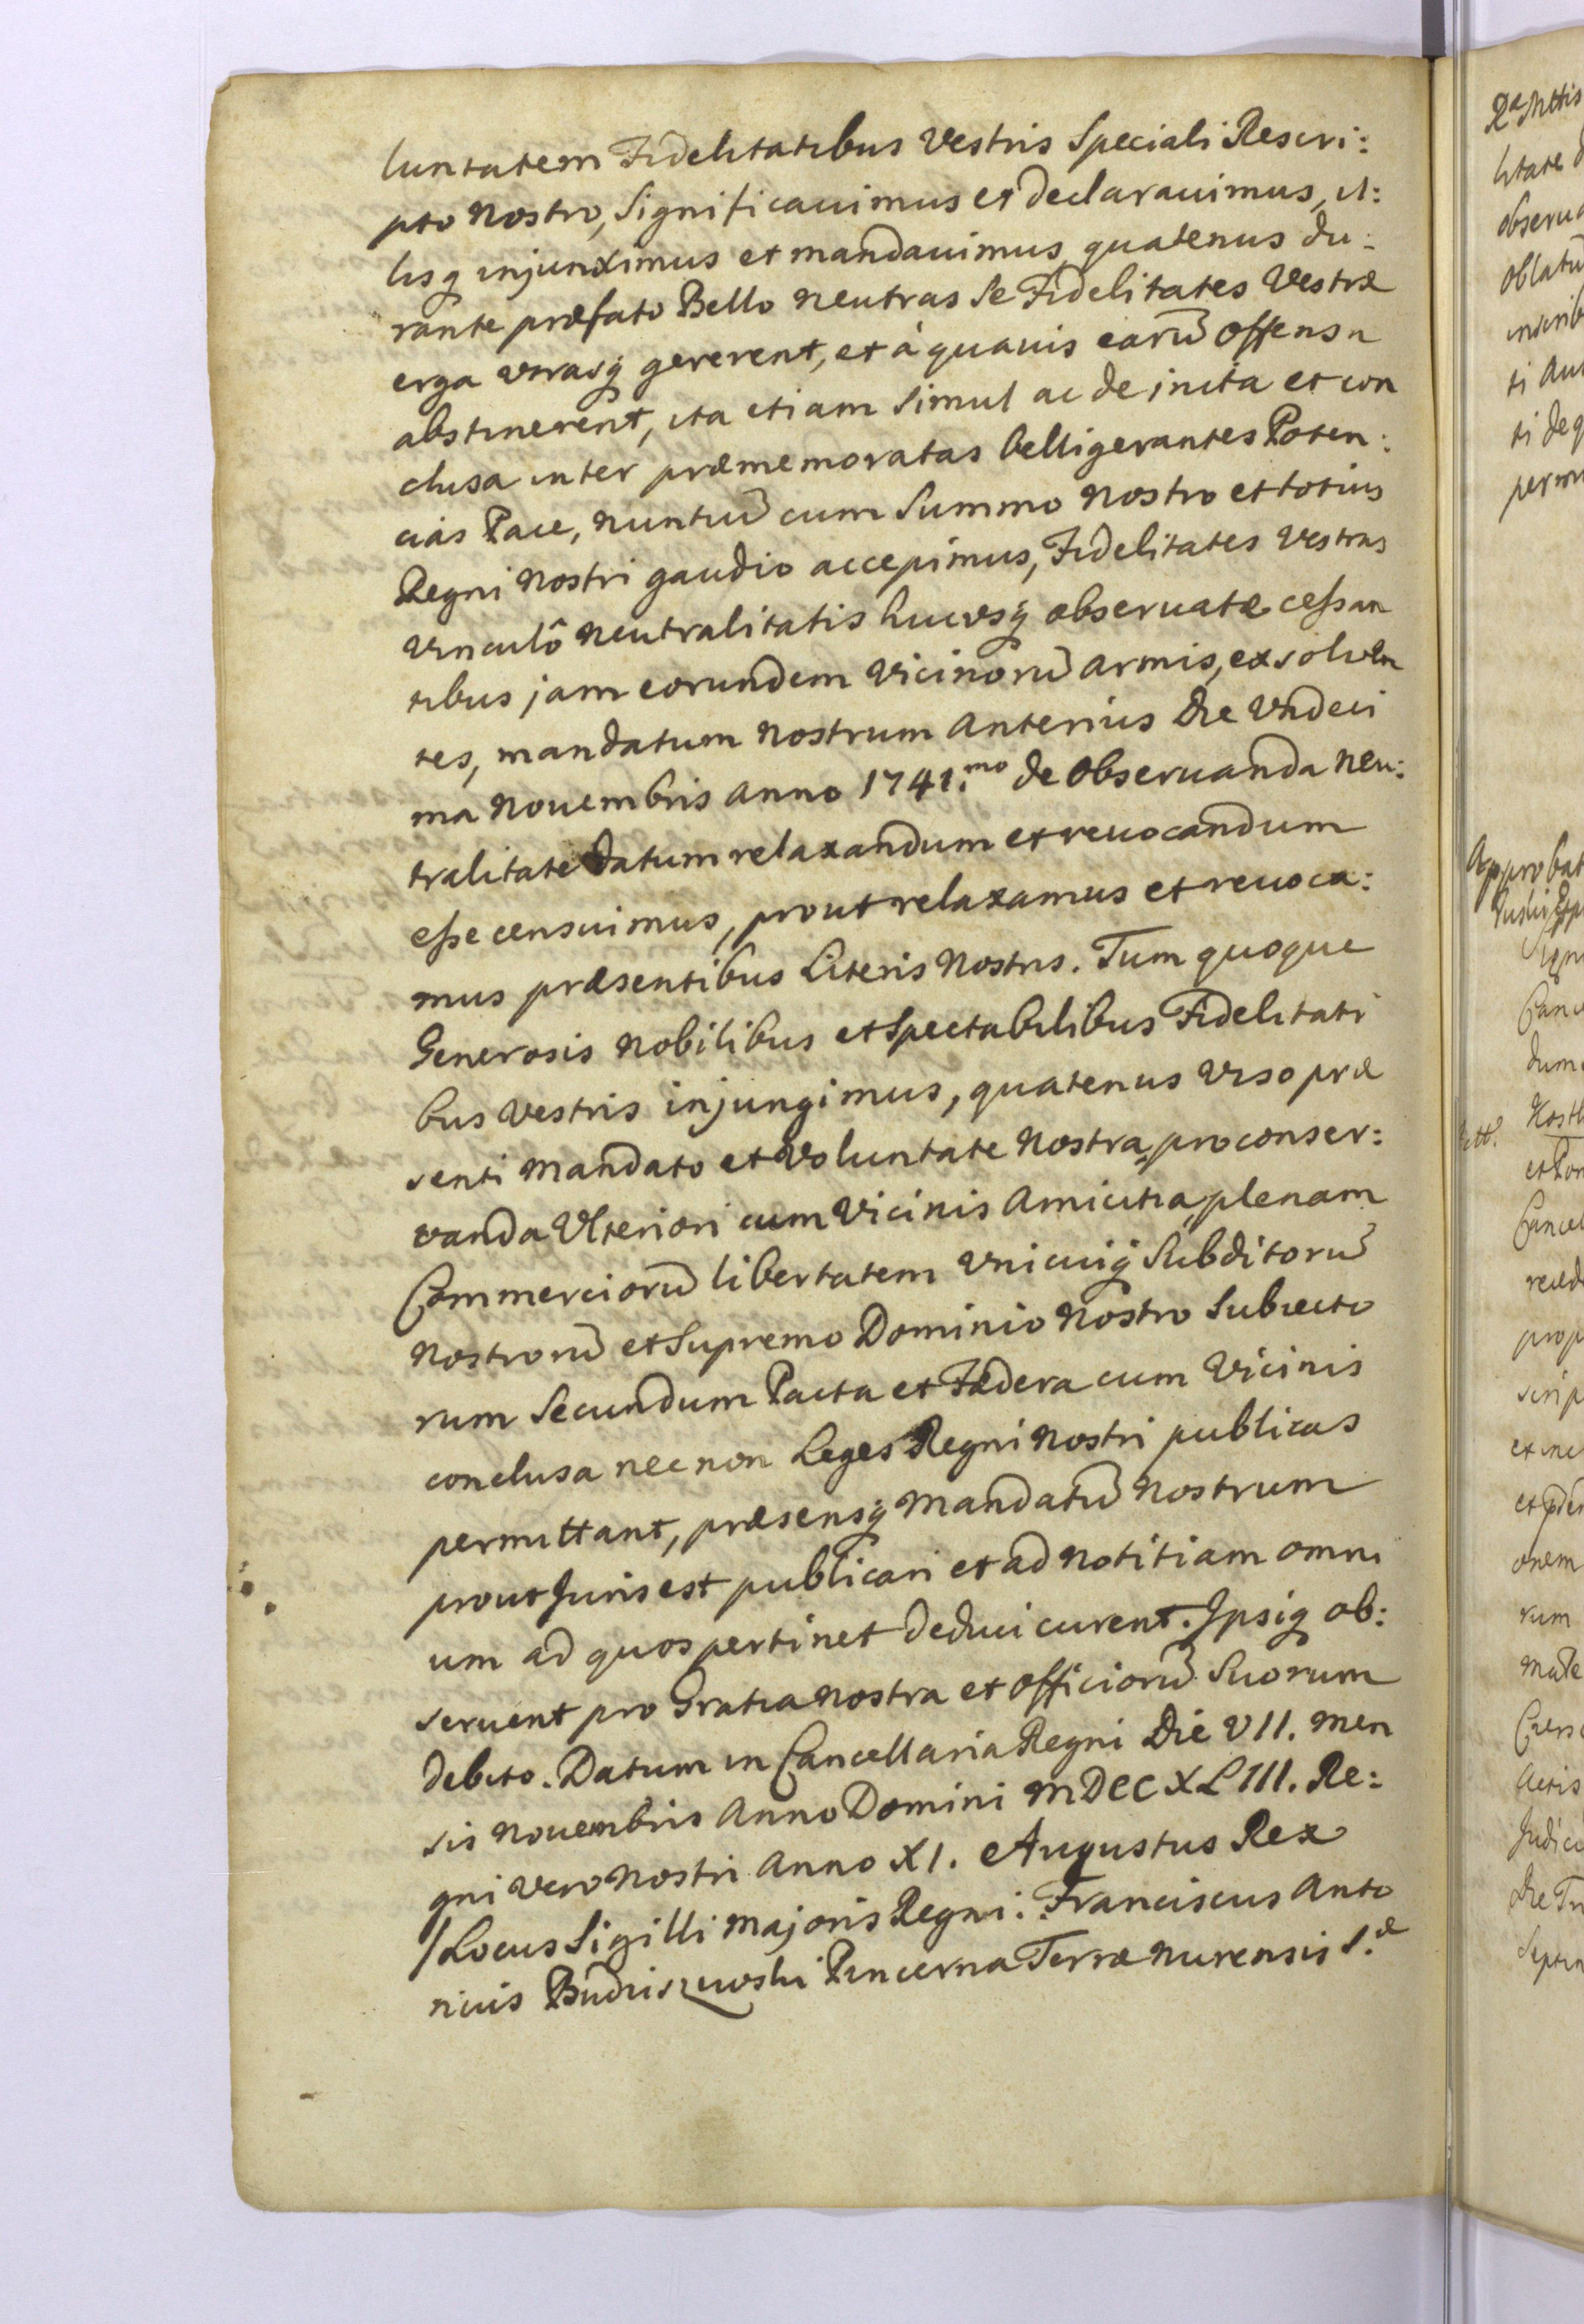 luntatem Fidelitatibus Vestris Speciali Rescri:
pto Nostro, Significauimus et declarauimus, il:
lisq injunximus et mandauimus quatenus du:
rante præfato Bello neutras se Fidelitates Vestræ
erga utrasq gererent, et à quauis earũ offensa
abstinerent, ita etiam simul ac de inita et con
clusa inter præmemoratas belligerantes Poten:
cias Pace, nuntiũ cum Summo Nostro et totius
Regni Nostri gaudio accepimus, Fidelitates Vestras
Vinculô Neutralitatis hucusq obseruatæ cessan
tibus jam eorundem Vicinorũ armis, exsoluen
tes, mandatum Nostrum anterius Die Vndeci
ma Nouembris Anno 1741.mo de Obseruanda Neu:
tralitate Datum relaxandum et reuocandum
esse censuimus, prout relaxamus et reuoca:
mus præsentibus Literis Nostris. Tum quoque
Generosis Nobilibus et Spectabilibus Fidelitati
bus Vestris injungimus, quatenus Viso præ
senti Mandato et Voluntate Nostra, pro conser:
vanda Vlteriori cum Vicinis Amicitia, plenam
Commerciorũ libertatem Vnicuiq Subditorũ
Nostrorũ et Supremo Dominio Nostro Subiecto
rum Secundum Pacta et Fædera cum Vicinis
conclusa nec non Leges Regni Nostri publicas
permittant, præsensq Mandatũ Nostrum
prout Juris est publicari et ad Notitiam omni
um ad quos pertinet deduci curent. Ipsiq ob:
seruent pro Gratia Nostra et Officiorũ Suorum
debito. Datum in Cancellaria Regni Die VII. Men
sis Nouembris Anno Domini MDCCXLIII. Re:
gni Vero Nostri Anno XI. Augustus Rex
/Locus Sigilli Majoris Regni: Franciscus Anto
nius Budziszewski Pincerna Terræ Nurensis S.æ